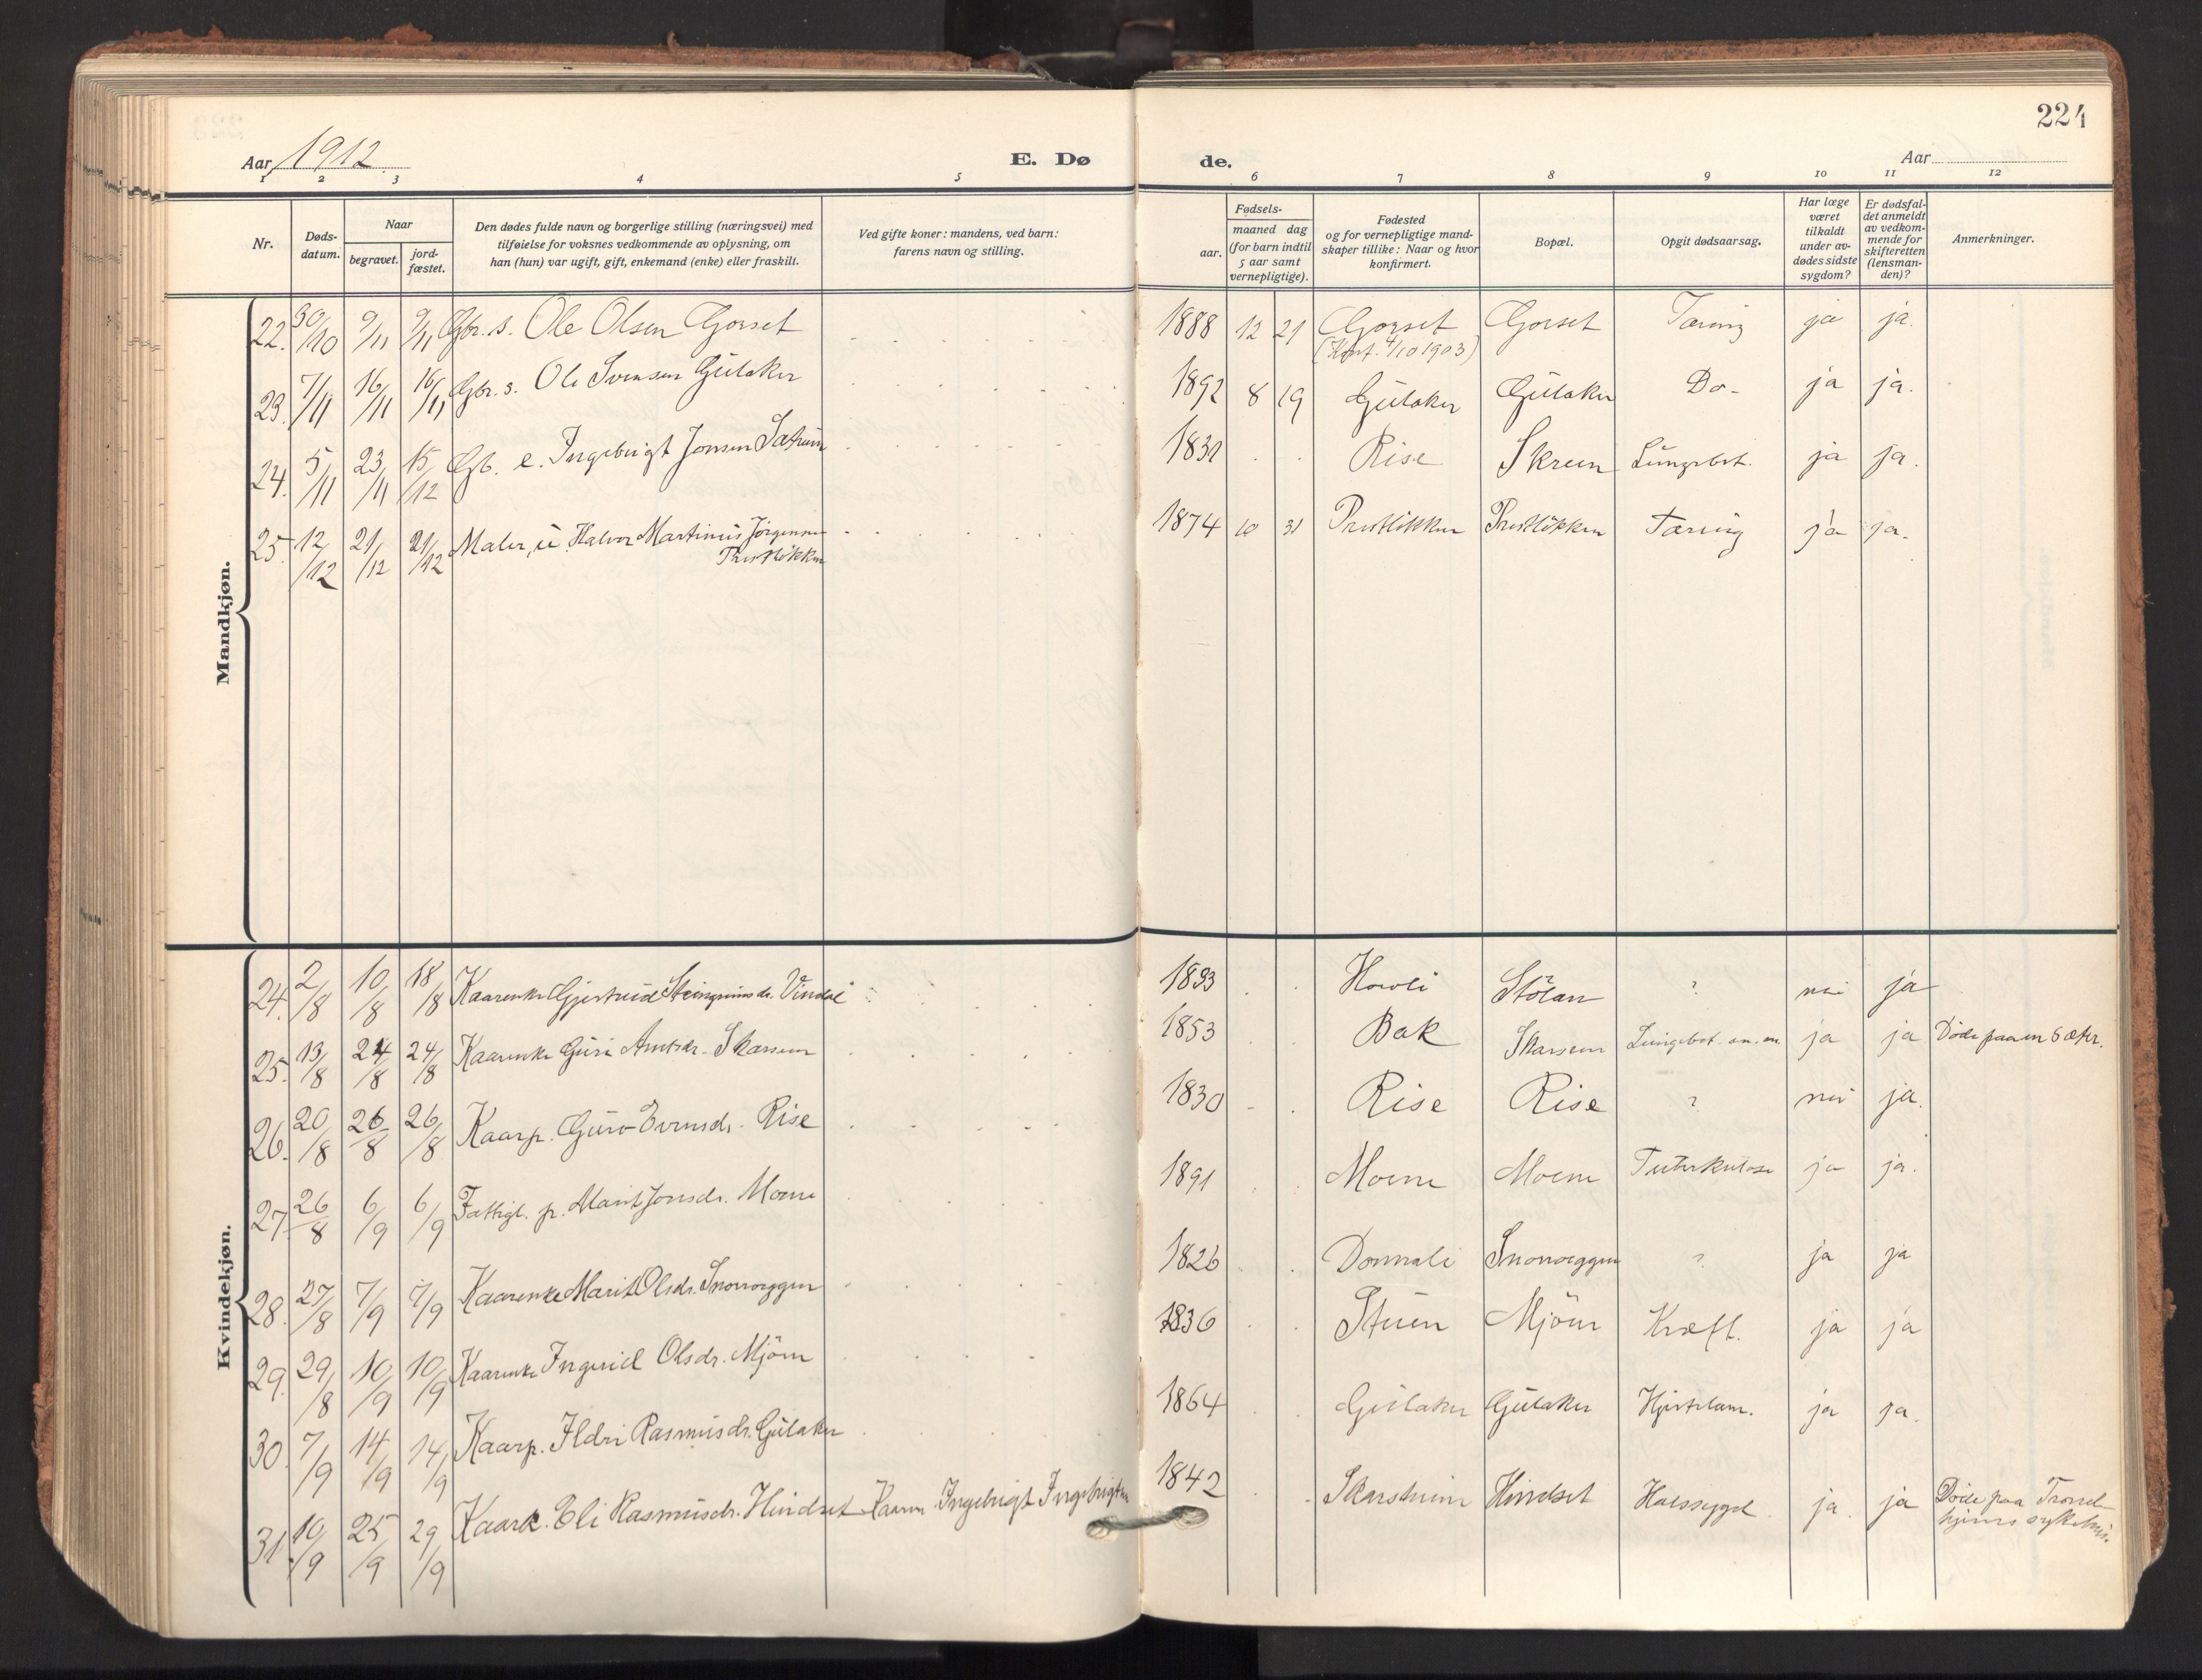 224
Aar 1912
E. Dø
de.
Aar
1 2 3 4 5 6 7 8 9 10 11 12
Nr.
Døds-
datum.
Naar
begravet.
jord-
fæstet.
Den dødes fulde navn og borgerlige stilling (næringsvei) med
tilføielse for voksnes vedkommende av oplysning, om
han (hun) var ugift, gift, enkemand (enke) eller fraskilt.
Ved gifte koner: mandens, ved barn:
farens navn og stilling.
Fødsels-
aar.
maaned dag
(for barn indtil
5 aar samt
vernepligtige).
Fødested
og for vernepligtige mand-
skaper tillike: Naar og hvor
konfirmert.
Bopæl.
Opgit dødsaarsag.
Har læge
været
tilkaldt
under av-
dødes sidste
sygdom?
Er dødsfal-
det anmeldt
av vedkom-
mende for
skifteretten
(lensman-
den)?
Anmerkninger.
Mandkjøn.
22. 30/10 9/11 9/11 Gbr. s. Ole Olsen Gorset 1888 12 21 Gorset Gorset Tæring ja ja.
(Konf. 4/10 1903)
23. 7/11 16/11 16/11 Gbr. s. Ole Svensen Gulaker 1892 8 19 Gulaker Gulaker Do- ja ja.
24. 5/11 23/11 15/12 Gb. e. Ingebrigt Jonsen Satrum 1831 Rise Skreen Lungebet. ja ja.
25 12/12 21/12 21/12 Maler, u. Halvor Martinus Jörgensen 1874 10 31 Prestlökken Prestlökken Tæring ja ja.
Prestlökken
Kvindekjøn.
24. 2/8 10/8 18/8 Kaarenke Gjertrud Steingrimsdr. Vindal 1833 Hovli Stölan ? nei ja
25. 13/8 24/8 24/8 Kaarenke Guri Arntsdr. Skarsem 1853 Bak Skarsem Lungebet. ja ja Döde paa en Sæter.
26. 20/8 26/8 26/8 Kaarp. Guro Evensdr. Rise 1830 Rise Rise ? nei ja.
27. 26/8 6/9 6/9 Fattigl. p. Marit Jonsdr. Moene 1891 Moene Moene Tuberkulose ja ja.
28. 27/8 7/9 7/9 Kaarenke Marit Olsdr. Snoveggen 1826 Donnali Snoveggen ? ja ja
29. 29/8 10/9 10/9 Kaarenke Ingerid Olsdr. Mjöen 1836 Stuen Mjöen Kræft. ja ja
30. 7/9 14/9 14/9 Kaarp. Ildri Rasmusdr. Gulaker 1864 Gulaker Gulaker Hjertelam. ja ja.
31. 10/9 25/9 29/9 Kaark. Eli Rasmusdr. Hindset Kaarm. Ingebrigt Ingebrigtsen 1842 Skarsheim Hindset Halssygd. ja. ja Döde paa Trond-
hjems sykehus.